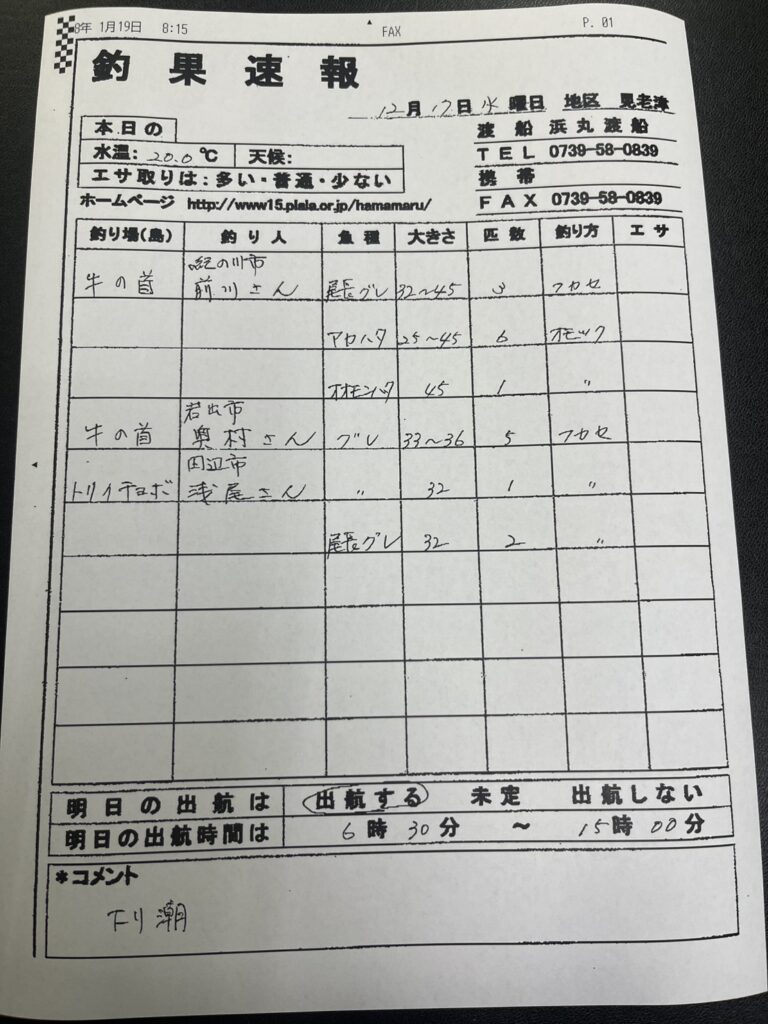 8年 1月19日 8:15 FAX P. 01
釣果速報
12月17日水曜日 地区 見老津
本日の
水温: 20.0℃ 天候:
エサ取りは:多い・普通・少ない
渡船 浜丸渡船
TEL 0739-58-0839
携帯
FAX 0739-58-0839
ホームページ http://www15.plala.or.jp/hamamaru/
釣り場(島) 釣り人 魚種 大きさ 匹数 釣り方 エサ
紀の川市
牛の首 前川さん 尾長グレ 32〜45 3 フカセ
アカハタ 25〜45 6 オモック
オオモンハタ 45 1 〃
岩出市
牛の首 奥村さん グレ 33〜36 5 フカセ
田辺市
トリイチョボ 浅尾さん 〃 32 1 〃
尾長グレ 32 2 〃
明日の出航は 出航する 未定 出航しない
明日の出航時間は 6時30分 〜 15時00分
*コメント
下り潮